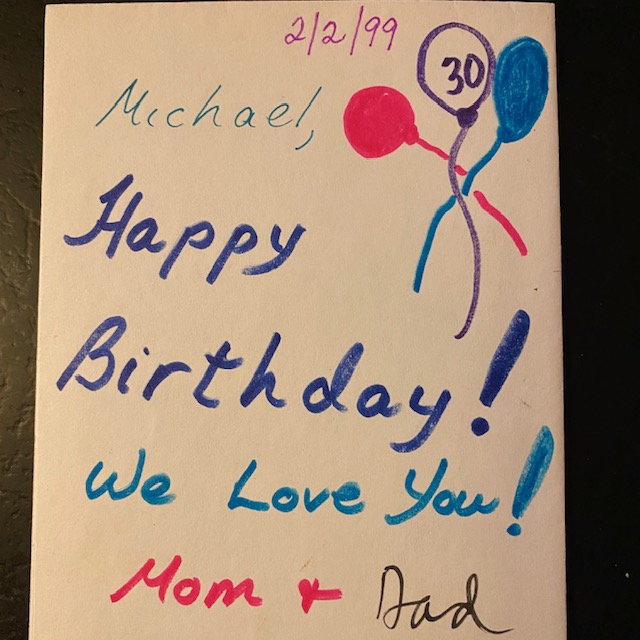 2/2/99
30
Michael,
Happy
Birthday!
We Love You!
Mom & Dad